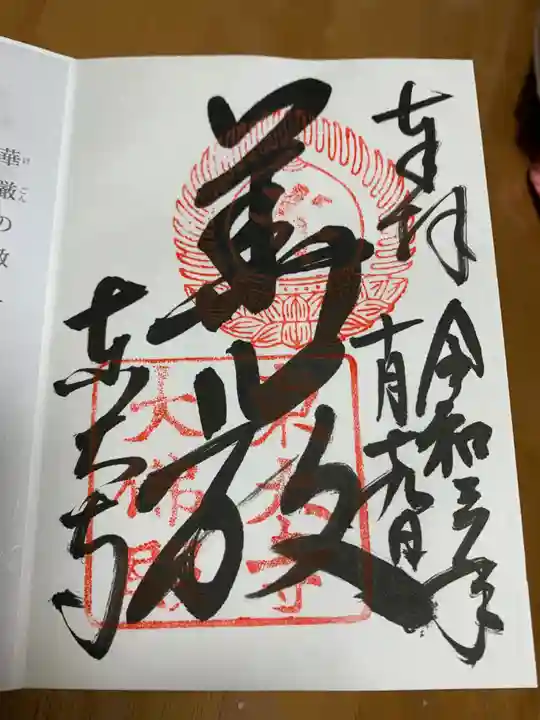 奉拝
令和三年
十月十九日
華嚴
東大寺
東大寺
大佛殿
華厳の